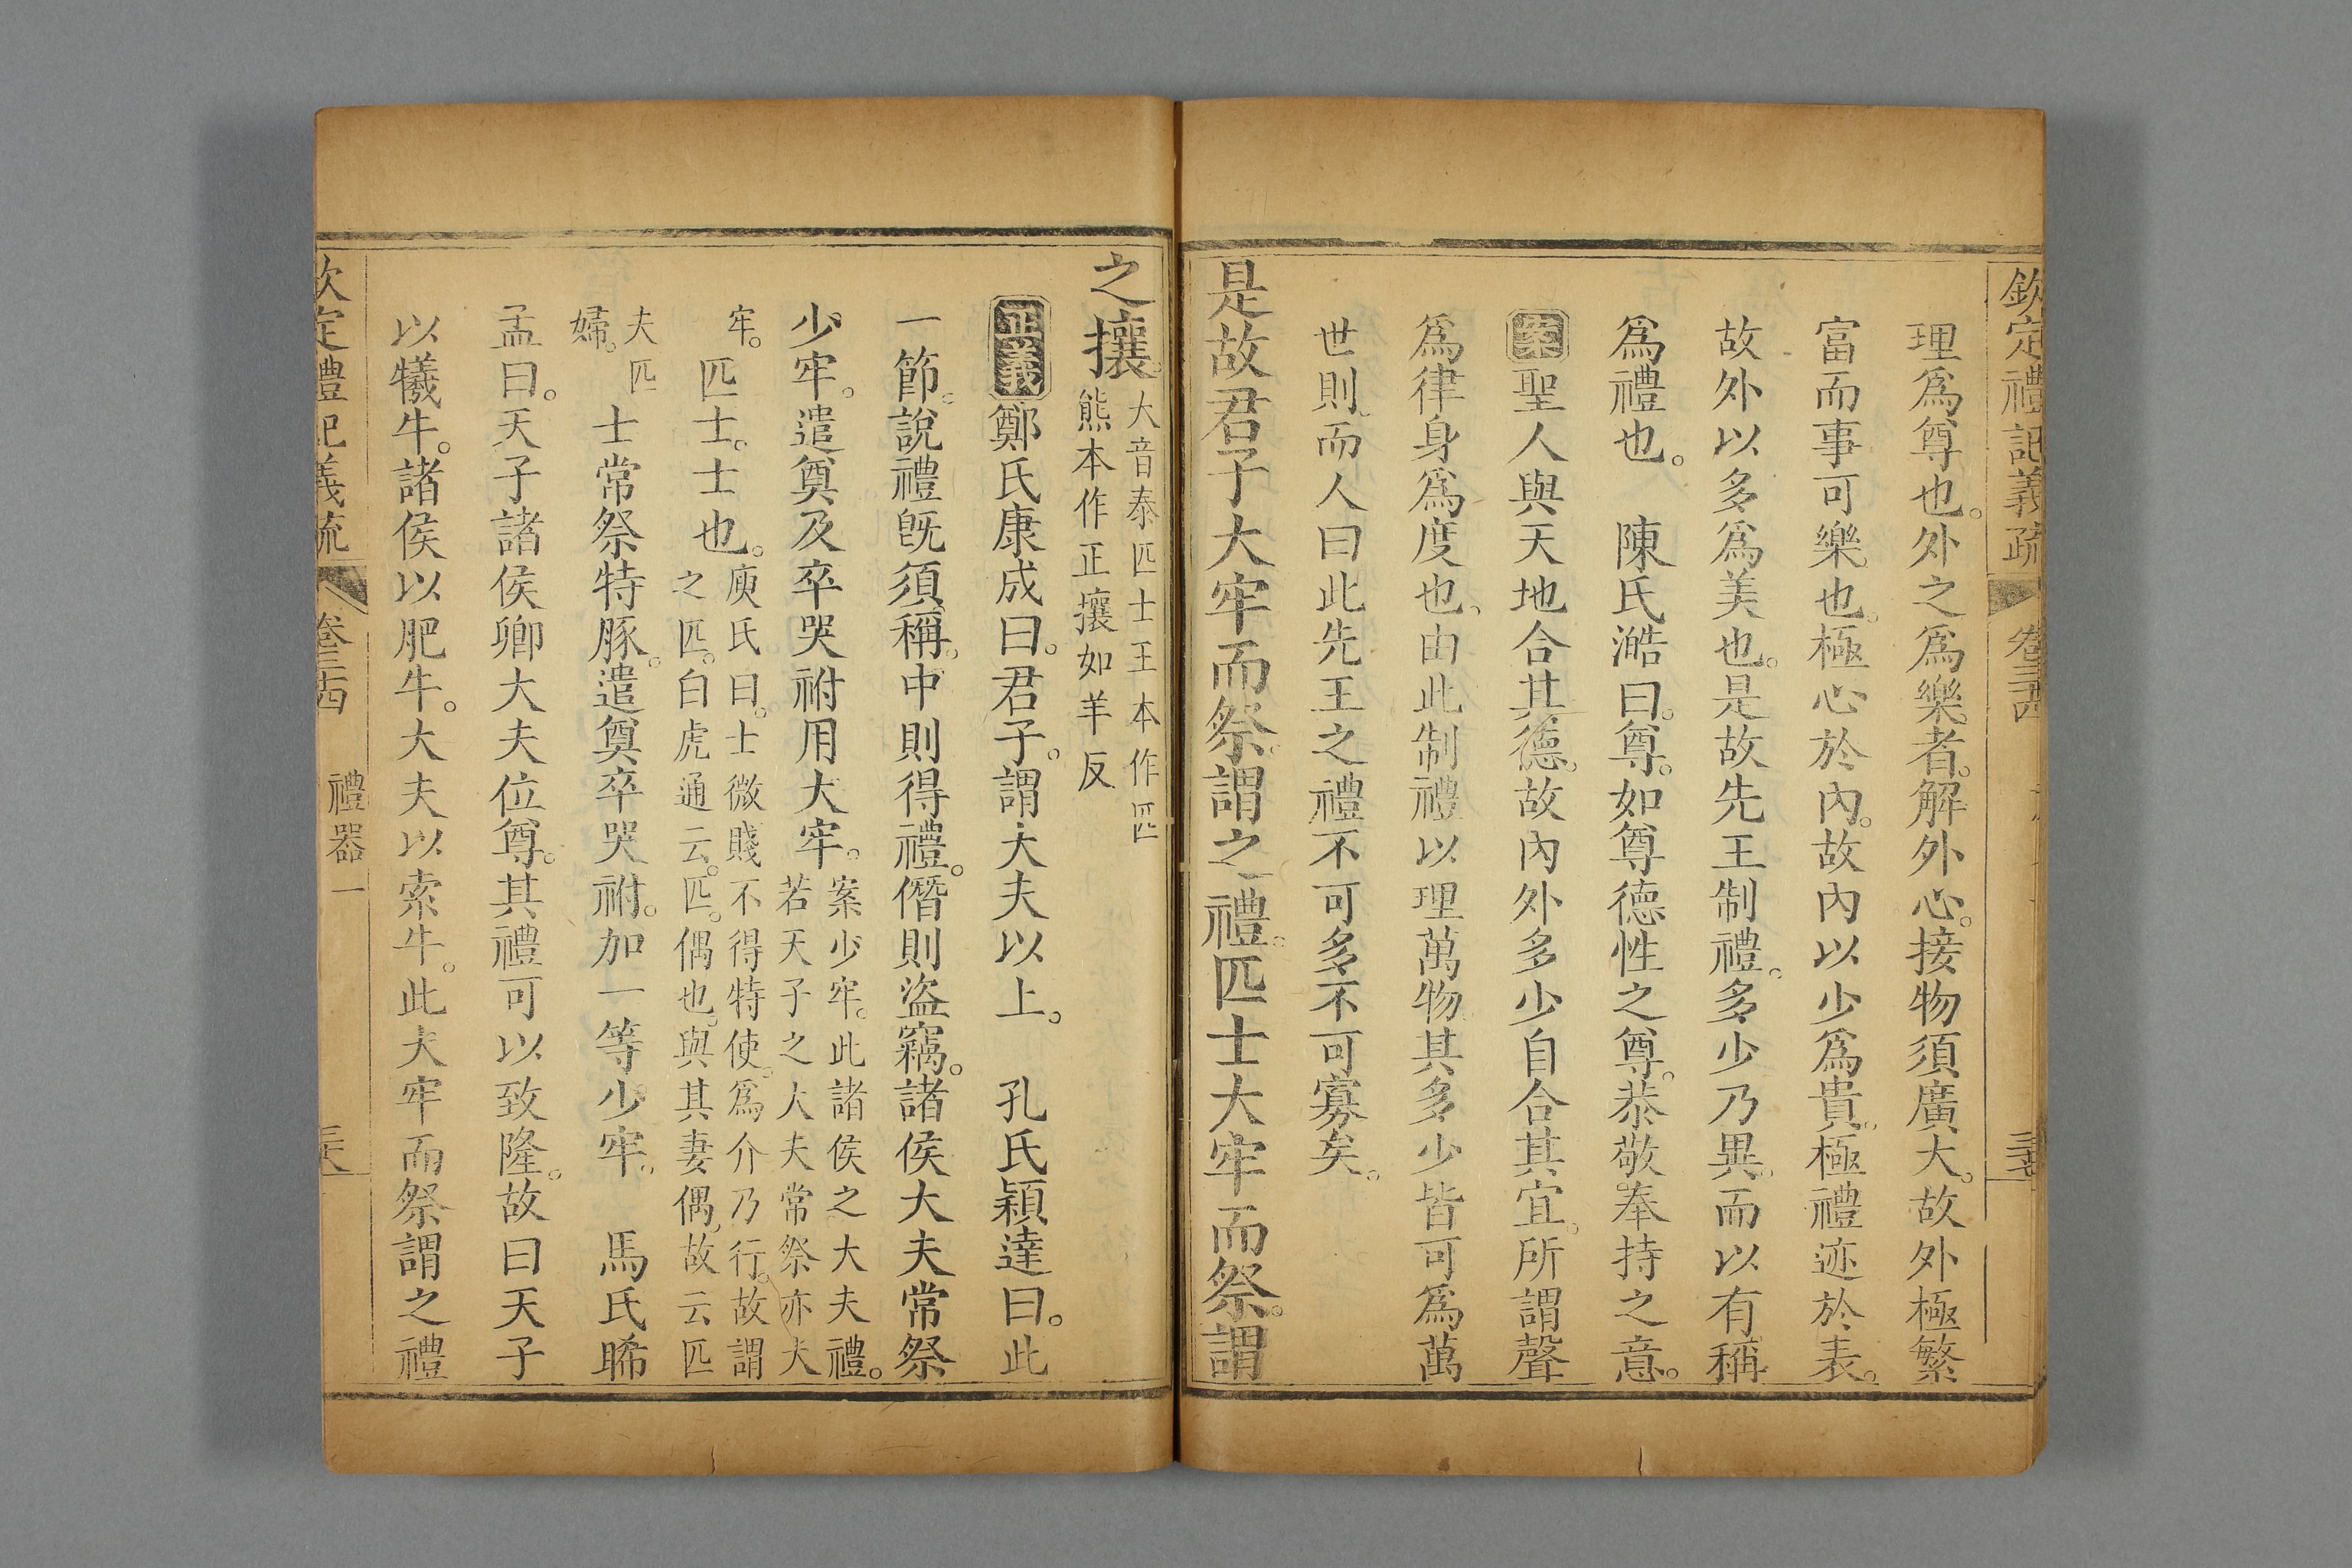 欽定禮記義疏 卷三十四
理爲尊也。外之爲樂者。解外心。接物須廣大。故外極繁
富而事可樂也。極心於內。故內以少爲貴。極禮迹於表。
故外以多爲美也。是故先王制禮。多少乃異。而以有稱
爲禮也。 陳氏澔曰。尊。如尊德性之尊。恭敬奉持之意。
案聖人與天地合其德。故內外多少自合其宜。所謂聲
爲律身爲度也。由此制禮以理萬物。其多少皆可爲萬
世則。而人曰此先王之禮不可多不可寡矣。
是故君子大牢而祭。謂之禮。匹士大牢而祭。謂
之攘。大音泰匹士王本作匹
熊本作正攘如羊反
正義鄭氏康成曰。君子。謂大夫以上。 孔氏穎達曰。此
一節。說禮旣須稱。中則得禮。僭則盜竊。諸侯大夫常祭
少牢。遣奠及卒哭祔用大牢。案少牢。此諸侯之大夫禮。
若天子之大夫常祭亦大
牢。匹士。士也。庾氏曰。士微賤不得特使。爲介乃行。故謂
之匹。白虎通云。匹。偶也。與其妻偶。故云匹
夫匹
婦。士常祭特豚。遣奠卒哭祔。加一等少牢。 馬氏睎
孟曰。天子諸侯卿大夫位尊。其禮可以致隆。故曰天子
以犧牛。諸侯以肥牛。大夫以索牛。此大牢而祭謂之禮
欽定禮記義疏 卷三十四 禮器一